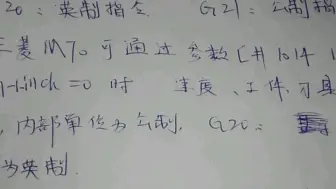 20：英制指令. G21：公制指
三菱M70可通过参数[#1014 1
1-linch=0时 速度、工件、刀具
, 内部单位为公制. G20：
为英制.